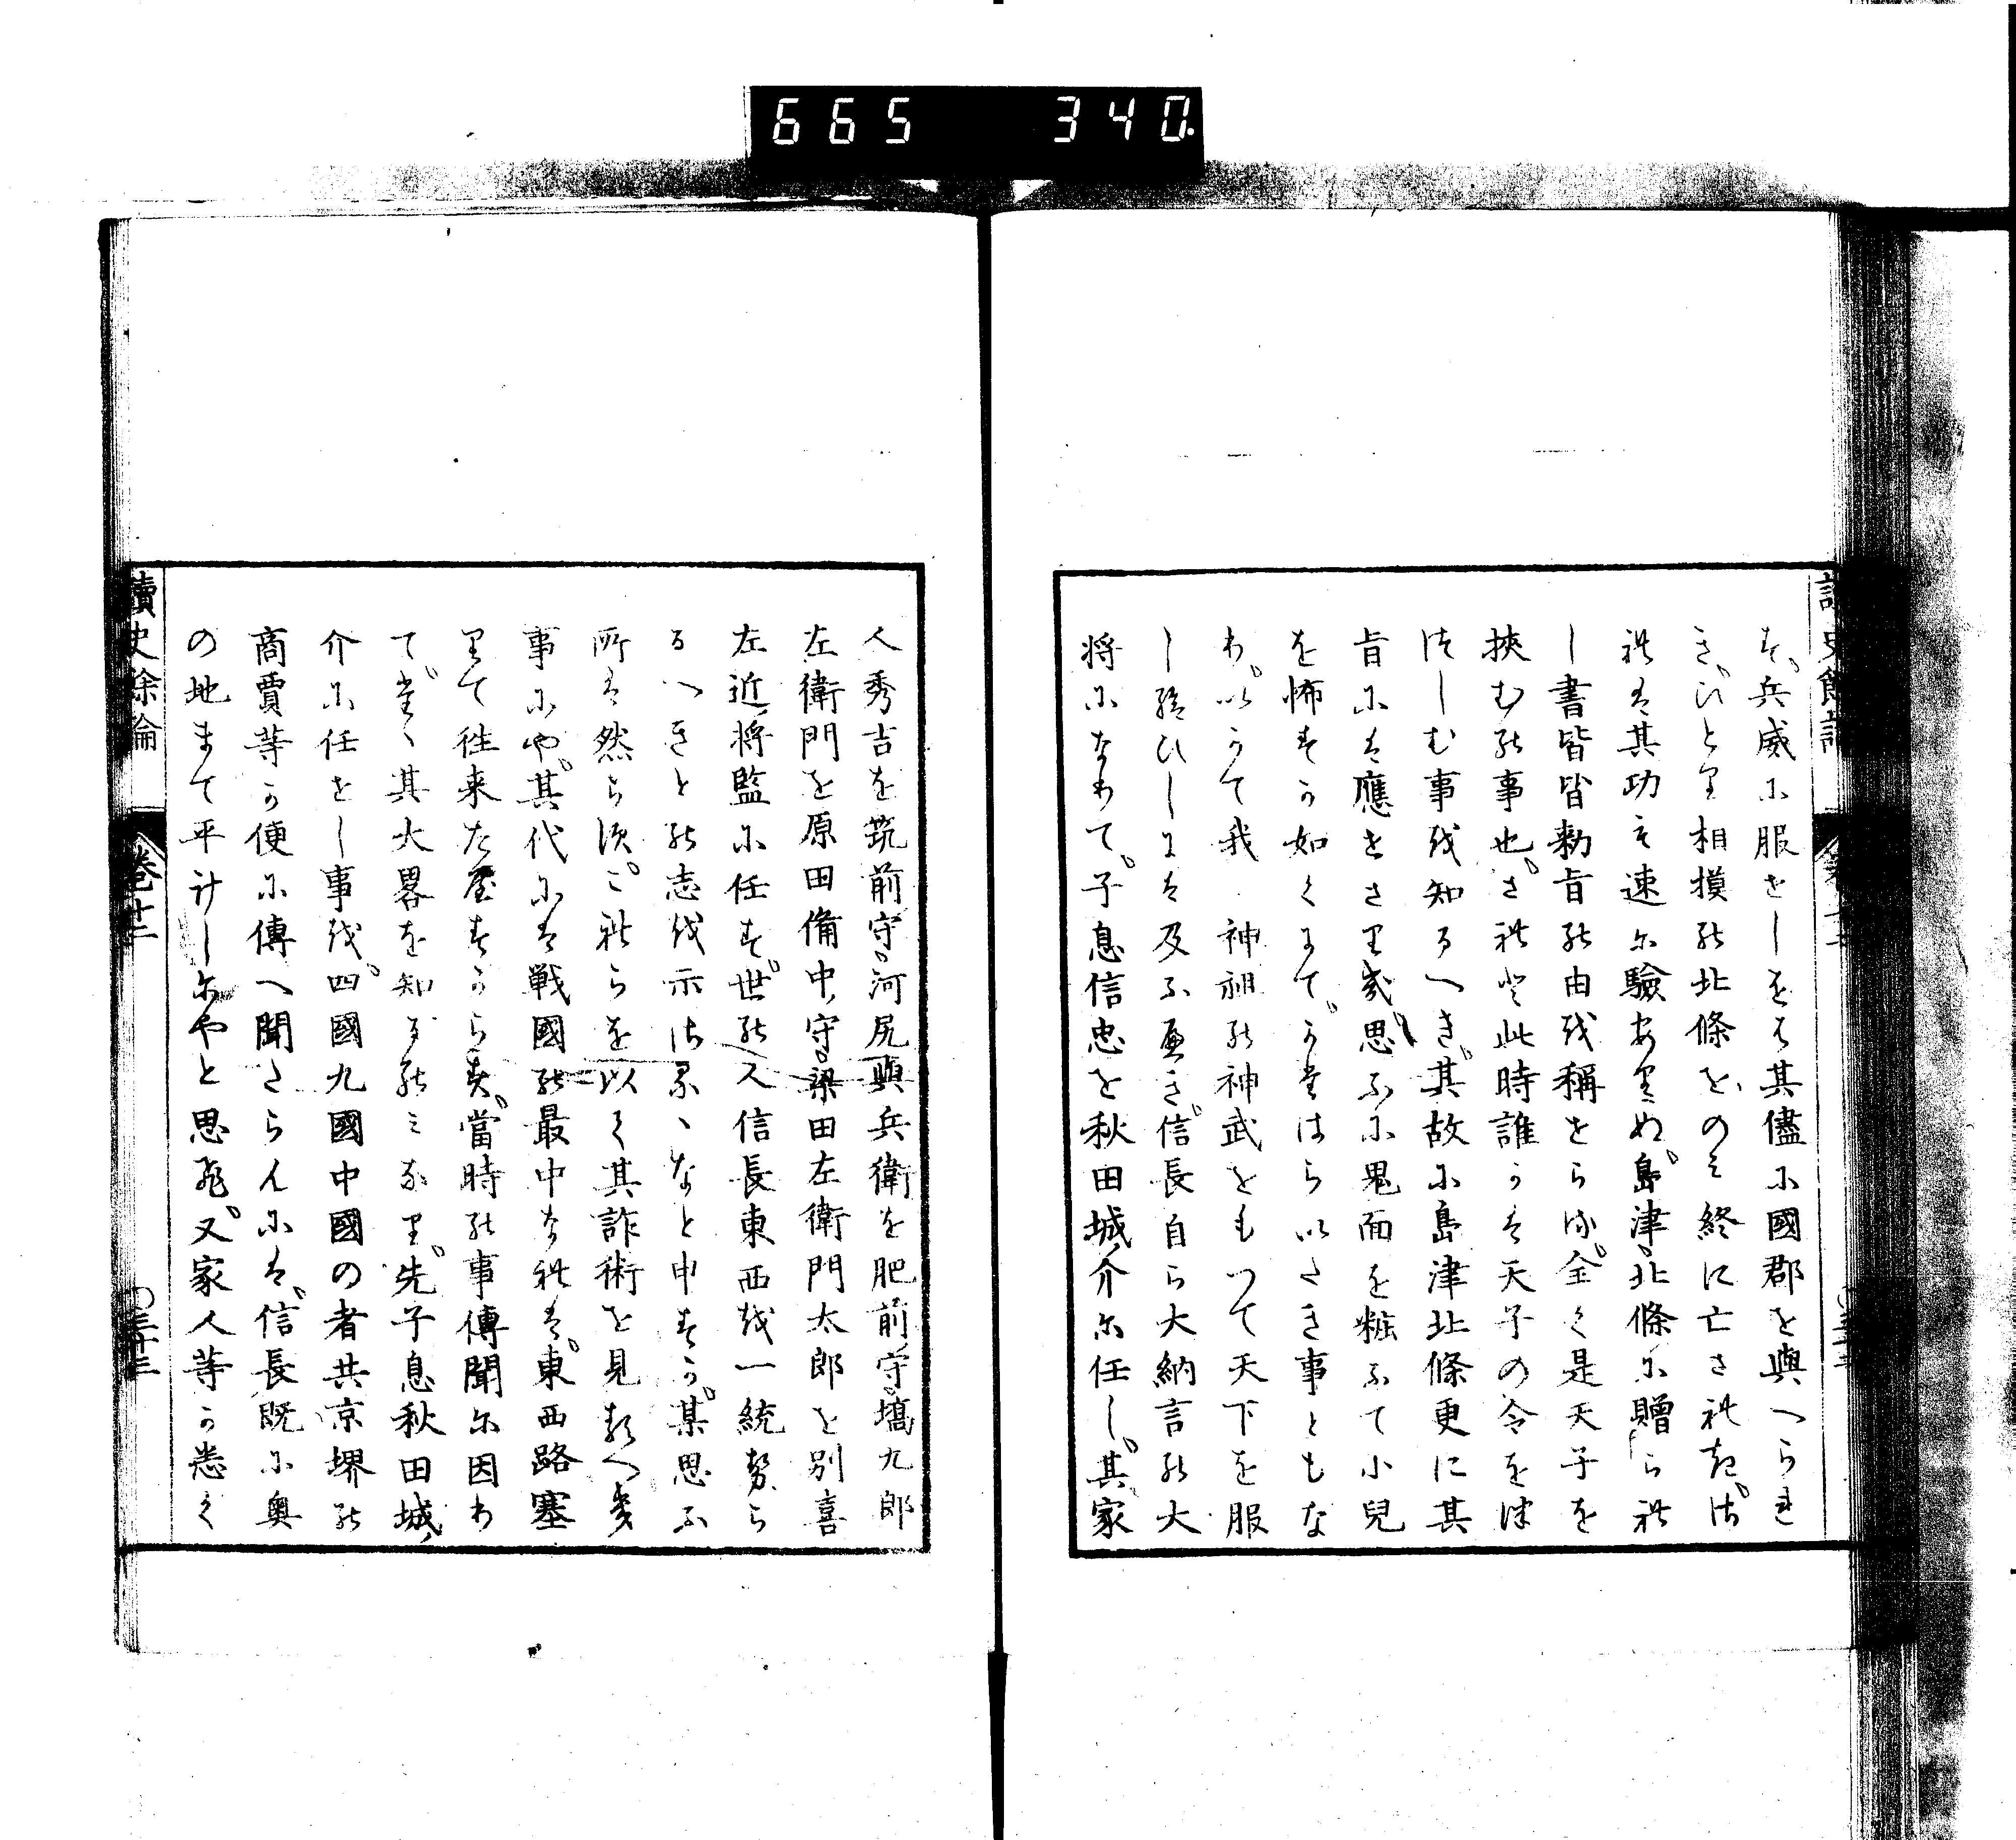 665 340.
そ、兵威に服せしをは其儘に國郡を與へられ
き、ひとり相摸の北條を、のミ終に亡されたり、さ
れは其功も速に驗ありぬ、島津、北條に贈られ
し書皆皆勅旨の由を稱せらる、全く是天子を
挾むの事也、されと此時誰かは天子の令を は
つしむ事を知るへき、其故に島津北條更に其
旨には應せさりき、思ふに鬼面を粧ふて小兒
を怖すか如くにて、かたはらいたき事ともな
り、いかて我 神祖の神武をもつて天下を服
し給ひしには及ふへき、信長自ら大納言の大
将になりて、子息信忠を秋田城ノ介に任し、其家
人秀吉を筑前守、河尻與兵衛を肥前守、塙九郎
左衛門を原田備中ノ守、梁田左衛門太郎を別喜
左近ノ将監に任す、世の人信長東西を一統せら
るへきとの志を示さる、なと申すか、某思ふ
所は然らす、これらを以て其詐術を見るへき
事にや、其代には戰國の最中なれは、東西路塞
りて往来たやすからす、當時の事傳聞に因り
てそ、其大畧を知るのミなり、先子息秋田城ノ
介に任せし事を、四國九國中國の者共京堺の
商賈等か便に傳へ聞さらんには、信長既に奥
の地まて平けしにやと思ふ、又家人等か悉く
讀史餘論 巻十二 〇三十三